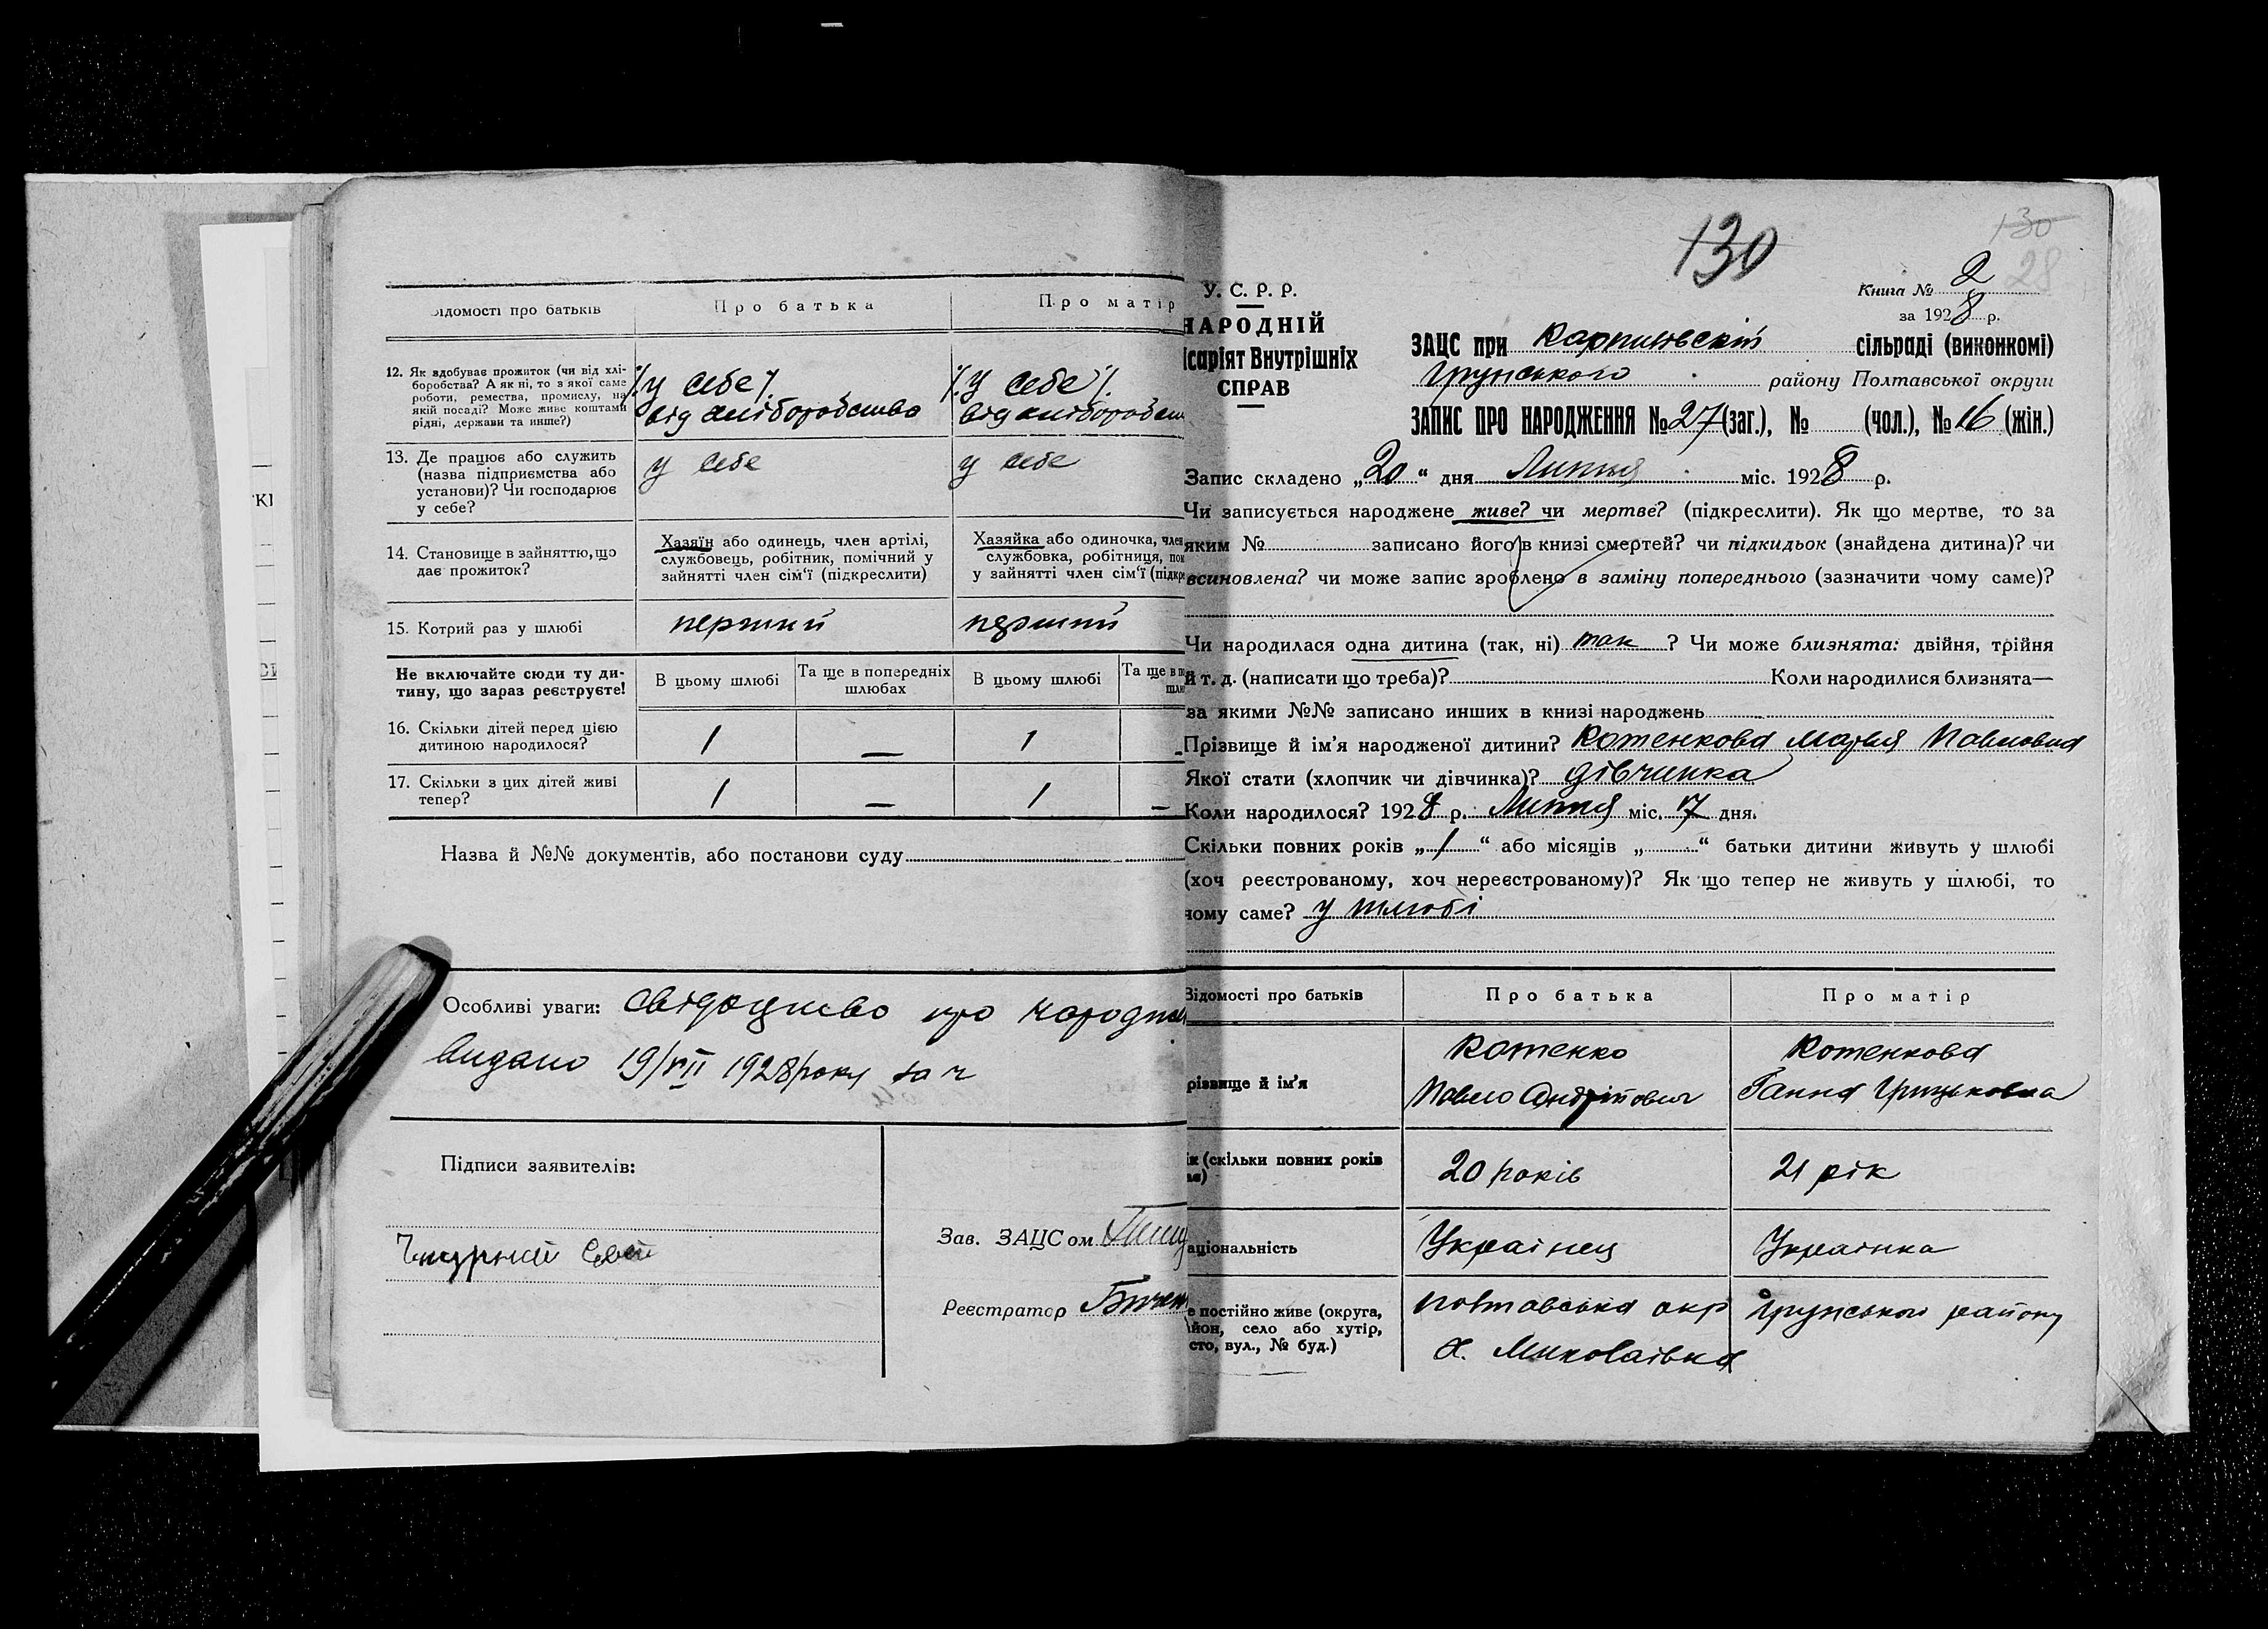 Відомості про батьків
Про батька
Про матір
12. Як здобуває прожиток (чи від хлі-
боробства? А як ні, то з якої саме
роботи, ремества, промислу, на
якій посаді? Може живе коштами
рідні, держави та инше?)
у себе
від хліборобства
у себе
від хліборобст
13. Де працює або служить
(назва підприємства або
установи)? Чи господарює
у себе?
у себе
у себе
14. Становище в зайняттю, що
дає прожиток?
Хазяїн або одинець, член артілі,
службовець, робітник, помічний у
зайнятті член сім'ї (підкреслити)
Хазяйка або одиночка, член
службовка, робітниця, пом
у зайнятті член сім'ї (підкре
15. Котрий раз у шлюбі
перший
перший
Не включайте сюди ту ди-
тину, що зараз реєструєте!
В цьому шлюбі
Та ще в попередніх
шлюбах
В цьому шлюбі
Та ще в по
шлю
16. Скільки дітей перед цією
дитиною народилося?
1 — 1 -
17. Скільки з цих дітей живі
тепер?
1 — 1 —
Назва й №№ документів, або постанови суду
Особливі уваги: свідоцтво про народже
видано 19/VII 1928 року за ч
Підписи заявителів:
Зав. ЗАЦСом
Реєстратор
130
130
28
У. С. Р. Р.
НАРОДНІЙ
ісаріят Внутрішніх
СПРАВ
Книга № 2
за 1928 р.
ЗАЦС при Карпилівскій сільраді (виконкомі)
Грунського району Полтавської округи
ЗАПИС ПРО НАРОДЖЕННЯ № 27 (заг.), № (чол.), № 16 (жін.)
Запис складено „20“ дня Липня міс. 1928 р.
Чи записується народжене живе? чи мертве? (підкреслити). Як що мертве, то за
яким № записано його в книзі смертей? чи підкидьок (знайдена дитина)? чи
всиновлена? чи може запис зроблено в заміну попереднього (зазначити чому саме)?
Чи народилася одна дитина (так, ні) так? Чи може близнята: двійня, трійня
й т. д. (написати що треба)? Коли народилися близнята—
за якими №№ записано инших в книзі народжень
Прізвище й ім'я народженої дитини? Котенкова Марья Павловна
Якої стати (хлопчик чи дівчинка)? дівчинка
Коли народилося? 1928 р. Липня міс. 17 дня.
Скільки повних років „1“ або місяців „ “ батьки дитини живуть у шлюбі
(хоч реєстрованому, хоч нереєстрованому)? Як що тепер не живуть у шлюбі, то
чому саме? у шлюбі
Відомості про батьків
Про батька
Про матір
різвище й ім'я
Котенко
Павло Андрійович
Котенкова
Ганна Грицьковна
ік (скільки повних років
ає)
20 років
21 рік
аціональність
Українец
Українка
е постійно живе (округа,
айон, село або хутір,
сто, вул., № буд.)
Полтавська окр Грунського району
х. Миколаівка